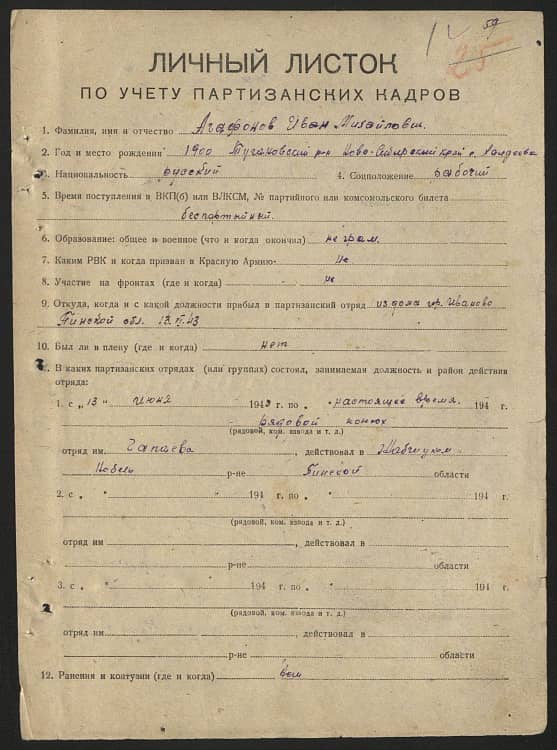 59
25
ЛИЧНЫЙ ЛИСТОК
ПО УЧЕТУ ПАРТИЗАНСКИХ КАДРОВ
1. Фамилия, имя и отчество Агафонов Иван Михайлович.
2. Год и место рождения 1900 Тугановский р-н Ново-Сибирский край с.
3. Национальность русский 4. Соцположение рабочий
5. Время поступления в ВКП(б) или ВЛКСМ, № партийного или комсомольского билета
беспартийный.
6. Образование: общее и военное (что и когда окончил) не грам.
7. Каким РВК и когда призван в Красную Армию- не.
8. Участие на фронтах (где и когда) не
9. Откуда, когда и с какой должности прибыл в партизанский отряд из дома гор. Иваново
Пинской обл. 13.VI.43
10. Был ли в плену (где и когда) нет
В каких партизанских отрядах (или группах) состоял, занимаемая должность и район действия
отряда:
1. с „13 " июня 1943 г. по „ настоящее время. 194 г.
рядовой конюх
(рядовой, ком. взвода и т. д.)
отряд им Чапаева, действовал в
р-не Пинской области
2. с „ " 194 г. по „ " 194 г.
(рядовой, ком. взвода и т. д.)
отряд им , действовал в
р-не области
3. с „ " 194 г. по „ " 194 г.
(рядовой, ком. взвода и т. д.)
отряд им , действовал в
р-не области
12. Ранения и контузии (где и когда)